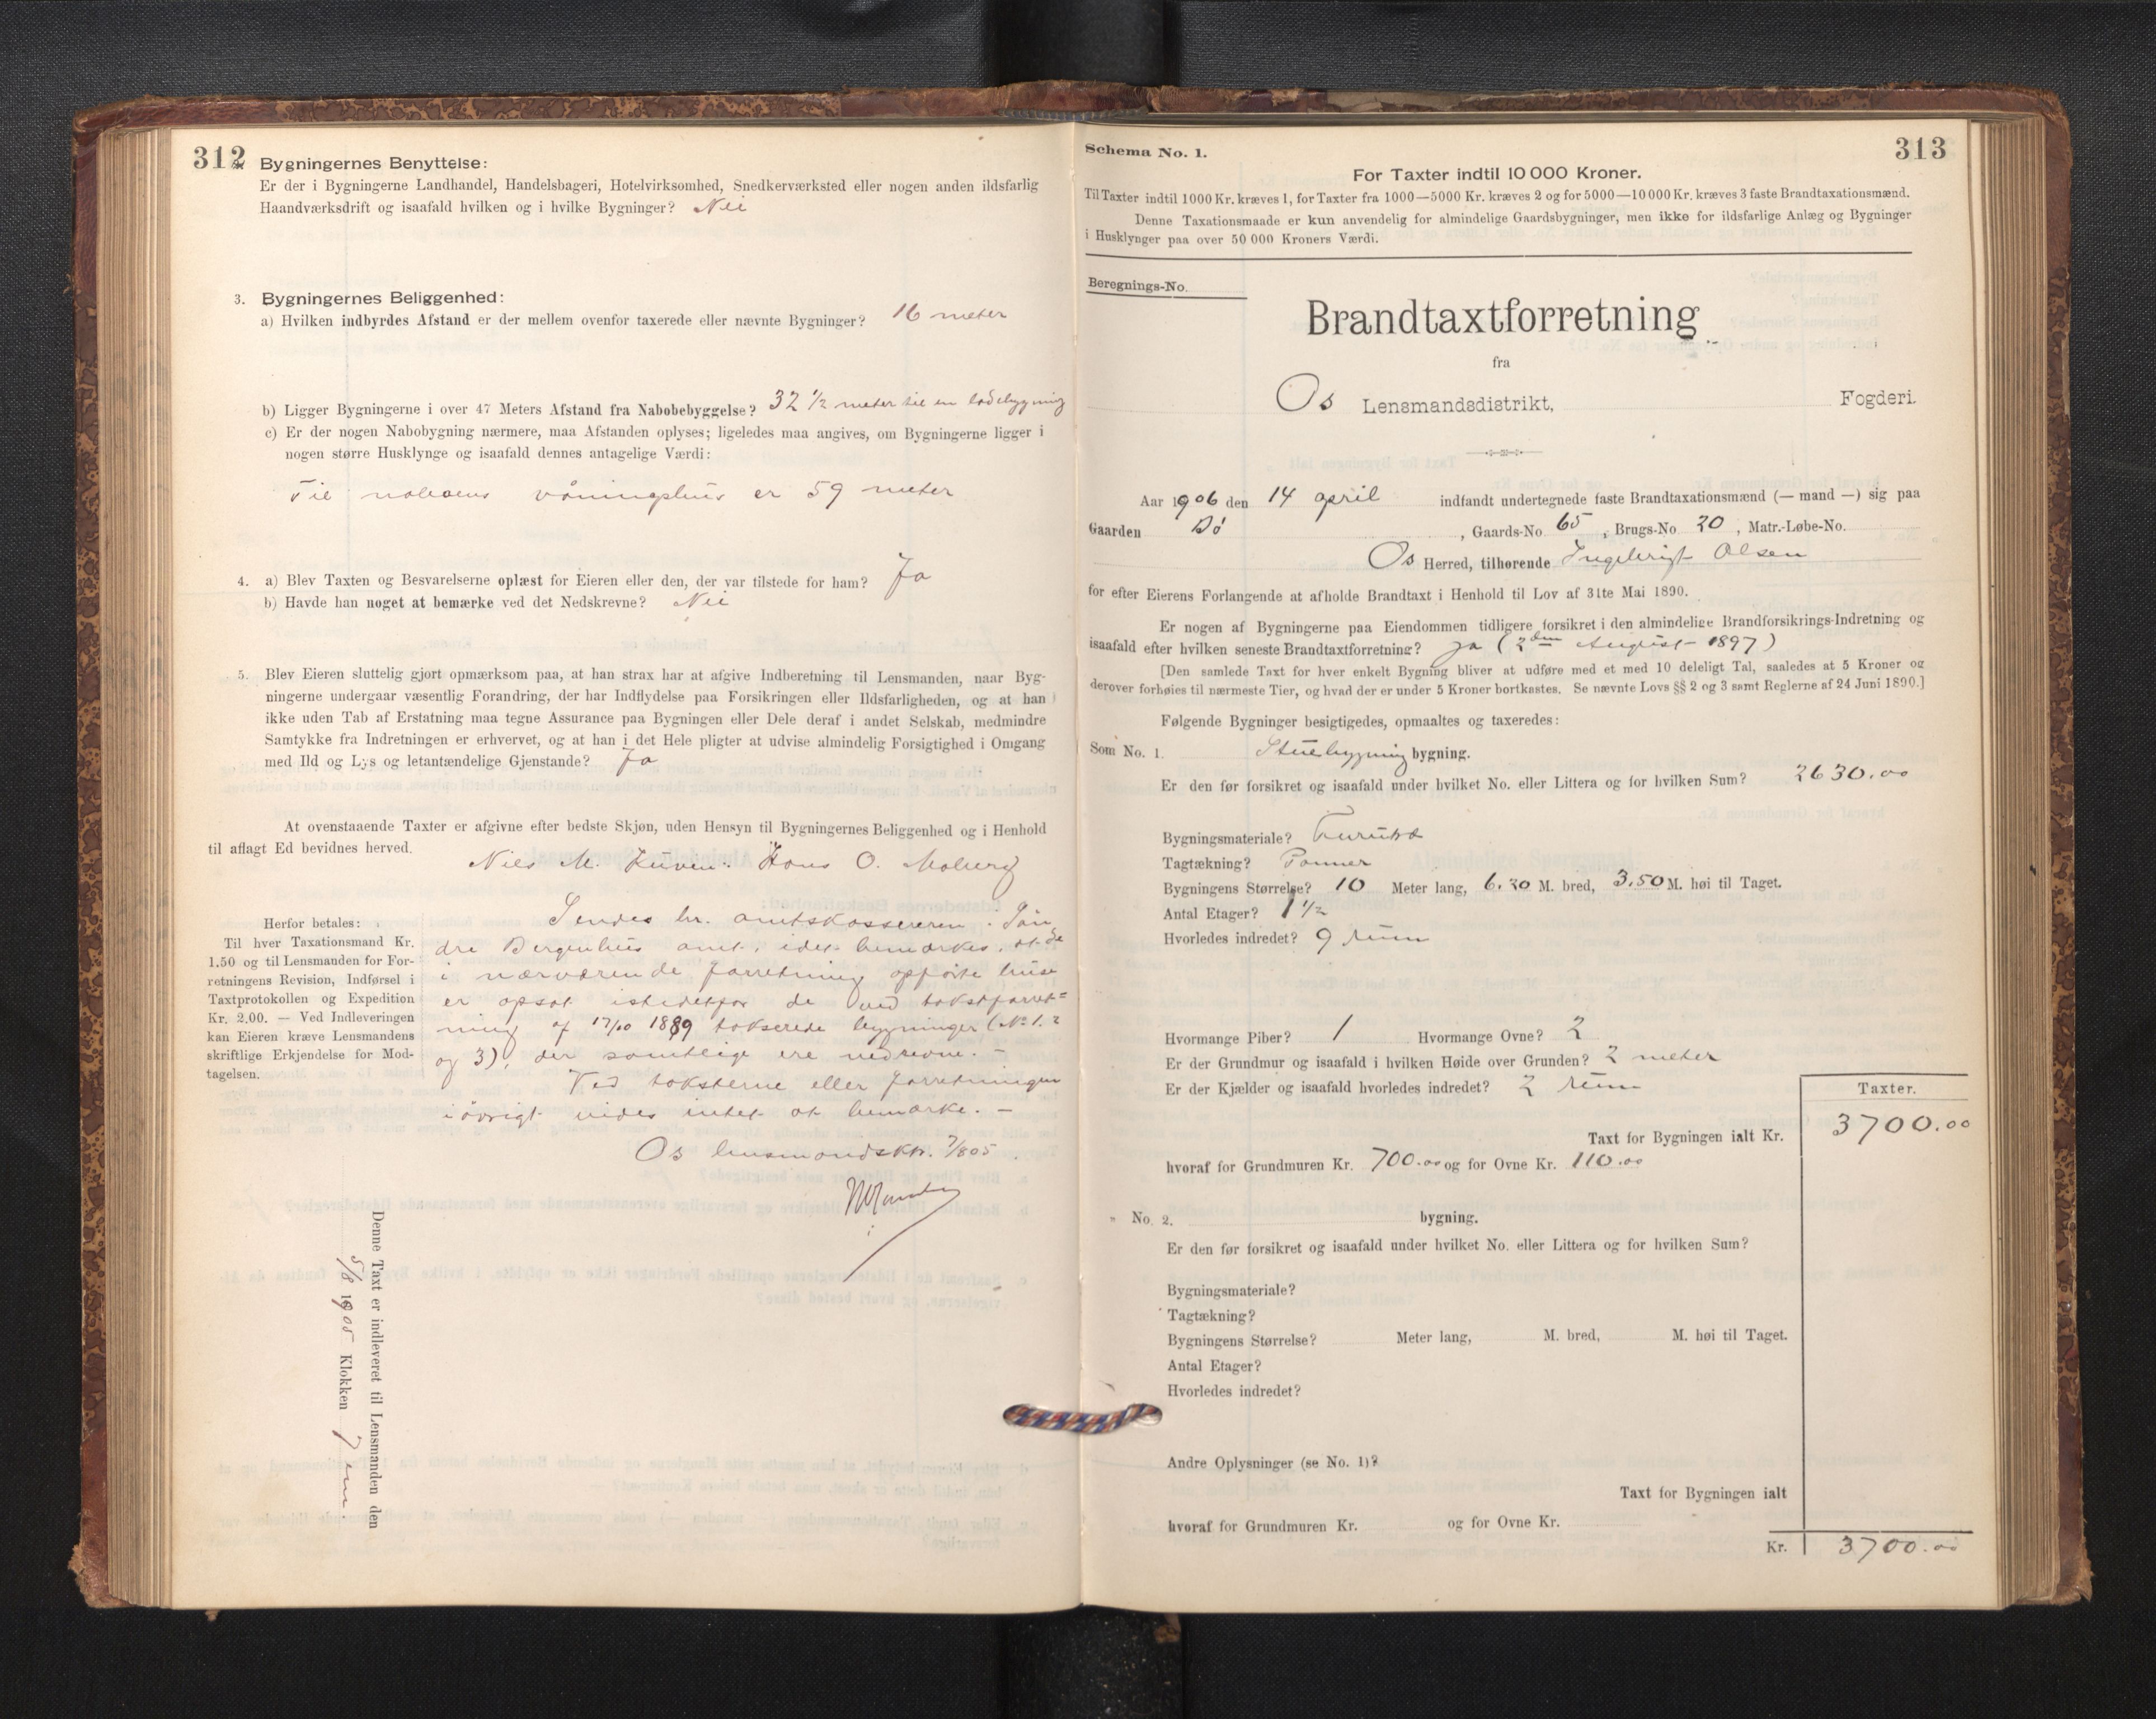 312
2. Bygningernes Benyttelse:
Er der i Bygningerne Landhandel, Handelsbageri, Hotelvirksomhed, Snedkerværksted eller nogen anden ildsfarlig
Haandværksdrift og isaafald hvilken og i hvilke Bygninger? Nei
3. Bygningernes Beliggenhed:
a) Hvilken indbyrdes Afstand er der mellem ovenfor taxerede eller nævnte Bygninger? 16 meter
b) Ligger Bygningerne i over 47 Meters Afstand fra Nabobebyggelse? 32 1/2 meter til en ladebygning
c) Er der nogen Nabobygning nærmere, maa Afstanden oplyses; ligeledes maa angives, om Bygningerne ligger i
nogen større Husklynge og isaafald dennes antagelige Værdi:
Til naboens våningshus er 59 meter
4. a) Blev Taxten og Besvarelserne oplæst for Eieren eller den, der var tilstede for ham? Ja
b) Havde han noget at bemærke ved det Nedskrevne? Nei
5. Blev Eieren sluttelig gjort opmærksom paa, at han strax har at afgive Indberetning til Lensmanden, naar Byg-
ningerne undergaar væsentlig Forandring, der har Indflydelse paa Forsikringen eller Ildsfarligheden, og at han
ikke uden Tab af Erstatning maa tegne Assurance paa Bygningen eller Dele deraf i andet Selskab, medmindre
Samtykke fra Indretningen er erhvervet, og at han i det Hele pligter at udvise almindelig Forsigtighed i Omgang
med Ild og Lys og letantændelige Gjenstande? Ja
At ovenstaaende Taxter er afgivne efter bedste Skjøn, uden Hensyn til Bygningernes Beliggenhed og i Henhold
til aflagt Ed bevidnes herved.
Nils M. Kuven. Hans O. Moberg
Herfor betales:
Til hver Taxationsmand Kr.
1.50 og til Lensmanden for For-
retningens Revision, Indførsel i
Taxtprotokollen og Expedition
Kr. 2.00. — Ved Indleveringen
kan Eieren kræve Lensmandens
skriftlige Erkjendelse for Mod-
tagelsen.
Sendes hr. amtskassereren i Søn-
dre Bergenhus amt, idet bemærkes, at de
i nærværende forretning opførte huse
er opsat istedetfor de ved takstforret=
ning af 17/10 1889 takserede bygninger (No 1. 2
og 3), der samtlige ere nedrevne. -
Ved taksterne eller forretningen
iøvrigt vides intet at bemærke. -
Os lensmandsktr. 7/8 05.
Denne Taxt er indleveret til Lensmanden den
5/8 1905 Klokken 7 em.
313
Schema No. 1.
For Taxter indtil 10 000 Kroner.
Til Taxter indtil 1000 Kr. kræves 1, for Taxter fra 1000—5000 Kr. kræves 2 og for 5000—10 000 Kr. kræves 3 faste Brandtaxationsmænd.
Denne Taxationsmaade er kun anvendelig for almindelige Gaardsbygninger, men ikke for ildsfarlige Anlæg og Bygninger
i Husklynger paa over 50 000 Kroners Værdi.
Beregnings-No.
Brandtaxtforretning
fra
Os Lensmandsdistrikt, Fogderi.
Aar 1906 den 14 april indfandt undertegnede faste Brandtaxationsmænd (— mand —) sig paa
Gaarden Bø, Gaards-No. 65, Brugs-No. 20, Matr.-Løbe-No.
Os Herred, tilhørende Ingebrigt Olsen
for efter Eierens Forlangende at afholde Brandtaxt i Henhold til Lov af 31te Mai 1890.
Er nogen af Bygningerne paa Eiendommen tidligere forsikret i den almindelige Brandforsikrings-Indretning og
isaafald efter hvilken seneste Brandtaxtforretning? Ja (2den August 1897)
[Den samlede Taxt for hver enkelt Bygning bliver at udføre med et med 10 deleligt Tal, saaledes at 5 Kroner og
derover forhøies til nærmeste Tier, og hvad der er under 5 Kroner bortkastes. Se nævnte Lovs §§ 2 og 3 samt Reglerne af 24 Juni 1890.]
Følgende Bygninger besigtigedes, opmaaltes og taxeredes:
Som No. 1. Stuebygning bygning.
Er den før forsikret og isaafald under hvilket No. eller Littera og for hvilken Sum? 2630.00
Bygningsmateriale? Furutræ
Tagtækning? Panner
Bygningens Størrelse? 10 Meter lang, 6.30 M. bred, 3.50 M. høi til Taget.
Antal Etager? 1 1/2
Hvorledes indredet? 9 rum
Hvormange Piber? 1 Hvormange Ovne? 2
Er der Grundmur og isaafald i hvilken Høide over Grunden? 2 meter
Er der Kjælder og isaafald hvorledes indredet? 2 rum
Taxter.
Taxt for Bygningen ialt Kr. 3700.00
hvoraf for Grundmuren Kr. 700.00 og for Ovne Kr. 110.00
" No. 2. bygning.
Er den før forsikret og isaafald under hvilket No. eller Littera og for hvilken Sum?
Bygningsmateriale?
Tagtækning?
Bygningens Størrelse? Meter lang, M. bred, M. høi til Taget.
Antal Etager?
Hvorledes indredet?
Andre Oplysninger (se No. 1)?
Taxt for Bygningen ialt
hvoraf for Grundmuren Kr. og for Ovne Kr.
Kr. 3700.00